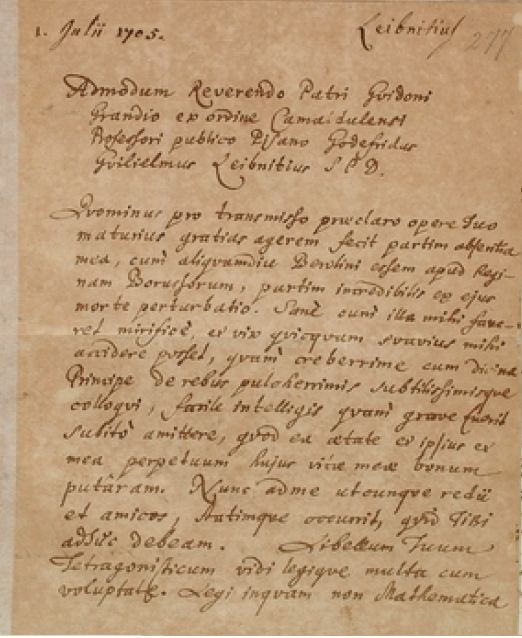 1. Julii 1705.
Leibnitius
277
Admodum Reverendo Patri Gvidoni
Grandio ex ordine Camaldulensi
Professori publico Pisano Godefridus
Gvilielmus Leibnitius S. P. D.
Qvominus pro transmisso præclaro opere Tuo
maturius gratias agerem fecit partim absentia
mea, cum aliqvamdiu Berolini essem apud Regi-
nam Borussorum, partim incredibilis ex ejus
morte perturbatio. Sanè cum illa mihi fave-
ret mirificè, et vix qvicqvam svavius mihi
accidere posset, qvam creberrime cum divina
Principe de rebus pulcherrimis subtilissimisqve
colloqvi, facile intelligis qvam grave fuerit
subitò amittere, qvod ex ætate et ipsius et
mea perpetuum hujus vitæ meæ bonum
putâram. Nunc ad me utcunqve redii
et amicos, statimqve occurrit, qvid Tibi
adhuc debeam. Libellum Tuum
Tetragonisticum vidi legiqve multa cum
voluptate. Legi inqvam non Mathematica